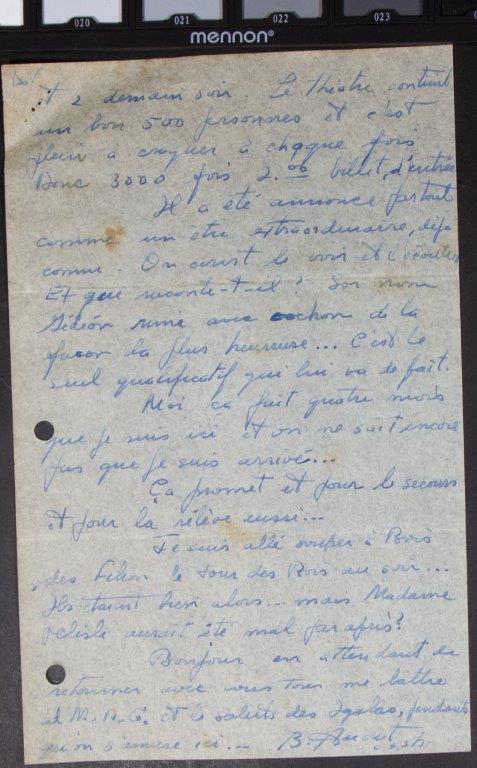 020 021 022 023
mennon®
et 2 demain soir. Le théatre contient
un bon 500 personnes et c'est
plein à craquer à chaque fois
Donc 3000 fois 2.00 billet d'entrée
Il a été annoncé partout
comme un être extraordinaire, déjà
connu. On court le voir et l'écouter
Et que raconte-t-il? Son nom
Gédéon rime avec cochon de la
façon la plus heureuse... C'est le
seul qualificatif qui lui va de fait.
Moi ça fait quatre mois
que je suis ici et on ne sait encore
pas que je suis arrivé...
Ça promet et pour le secours
et pour la relève aussi...
Je suis allé souper à Bois
des Filion le jour des Rois au soir...
Ils étaient bien alors... mais Madame
Delisle aurait été mal par après?
Bonjour en attendant de
retourner avec vous tous me battre
et M.R.C. et le saluts des Igalas, pendant
qu'on s'amuse ici...